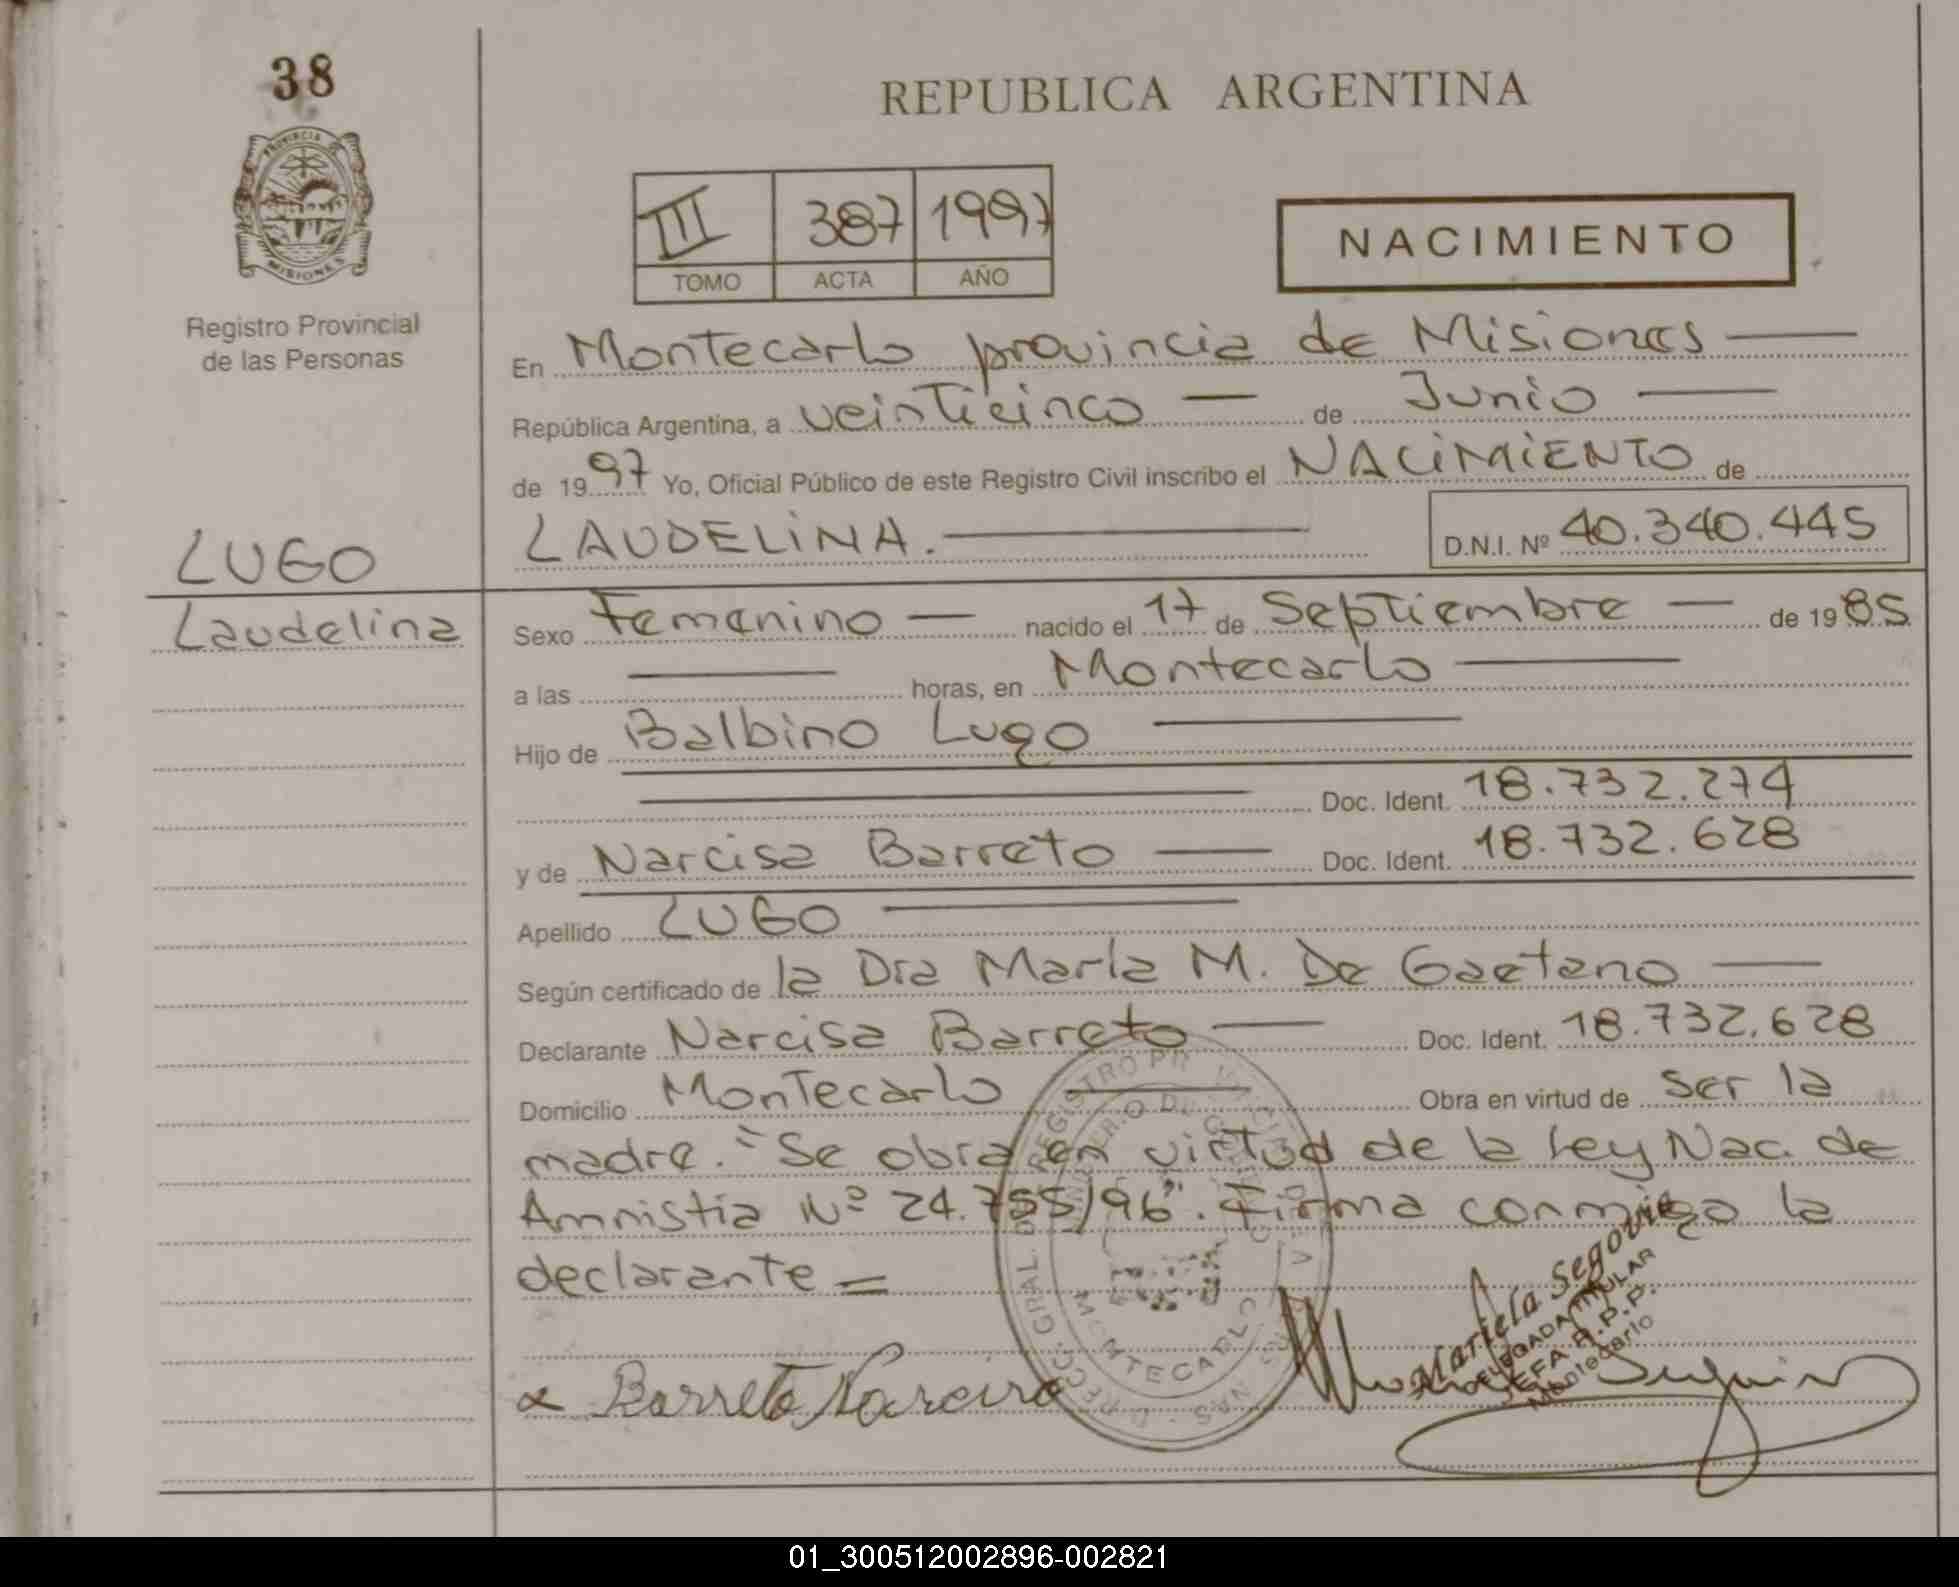 38
REPUBLICA ARGENTINA
PROVINCIA DE
MISIONES
III 387 1997
TOMO ACTA AÑO
NACIMIENTO
Registro Provincial
de las Personas
En Montecarlo provincia de Misiones
República Argentina, a veinticinco de Junio
de 1997 Yo, Oficial Público de este Registro Civil inscribo el NACIMIENTO de
LUGO LAUDELINA. D.N.I. Nº 40.340.445
Laudelina Sexo Femenino nacido el 17 de Septiembre de 1985
a las horas, en Montecarlo
Hijo de Balbino Lugo
Doc. Ident. 18.732.274
y de Narcisa Barreto Doc. Ident. 18.732.628
Apellido LUGO
Según certificado de la Dra María M. De Gaetano
Declarante Narcisa Barreto Doc. Ident. 18.732.628
Domicilio Montecarlo Obra en virtud de ser la
madre. "Se obra en virtud de la Ley Nac. de
Amnistia Nº 24.755/96". Firma conmigo la
declarante =
Mariela Segovia
DELEGADA TITULAR
JEFA R.P.P.
Montecarlo
MONTECARLO
Barreto Narcisa
01_300512002896-002821